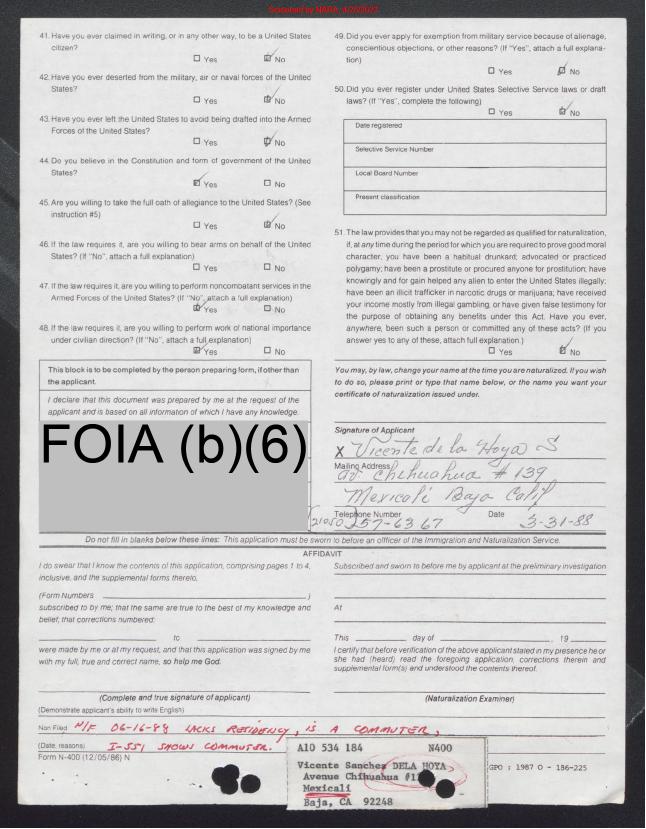 Scanned by NARA, 4/26/2023
41. Have you ever claimed in writing, or in any other way, to be a United States
citizen?
☐ Yes ☑ No
42. Have you ever deserted from the military, air or naval forces of the United
States?
☐ Yes ☑ No
43. Have you ever left the United States to avoid being drafted into the Armed
Forces of the United States?
☐ Yes ☑ No
44. Do you believe in the Constitution and form of government of the United
States?
☑ Yes ☐ No
45. Are you willing to take the full oath of allegiance to the United States? (See
instruction #5)
☐ Yes ☑ No
46. If the law requires it, are you willing to bear arms on behalf of the United
States? (If "No", attach a full explanation)
☐ Yes ☐ No
47. If the law requires it, are you willing to perform noncombatant services in the
Armed Forces of the United States? (If "No", attach a full explanation)
☑ Yes ☐ No
48. If the law requires it, are you willing to perform work of national importance
under civilian direction? (If "No", attach a full explanation)
☑ Yes ☐ No
This block is to be completed by the person preparing form, if other than
the applicant.
I declare that this document was prepared by me at the request of the
applicant and is based on all information of which I have any knowledge.
FOIA (b)(6)
49. Did you ever apply for exemption from military service because of alienage,
conscientious objections, or other reasons? (If "Yes", attach a full explana-
tion)
☐ Yes ☑ No
50. Did you ever register under United States Selective Service laws or draft
laws? (If "Yes", complete the following)
☐ Yes ☑ No
Date registered
Selective Service Number
Local Board Number
Present classification
51. The law provides that you may not be regarded as qualified for naturalization,
if, at any time during the period for which you are required to prove good moral
character, you have been a habitual drunkard; advocated or practiced
polygamy; have been a prostitute or procured anyone for prostitution; have
knowingly and for gain helped any alien to enter the United States illegally;
have been an illicit trafficker in narcotic drugs or marijuana; have received
your income mostly from illegal gambling, or have given false testimony for
the purpose of obtaining any benefits under this Act. Have you ever,
anywhere, been such a person or committed any of these acts? (If you
answer yes to any of these, attach full explanation.)
☐ Yes ☑ No
You may, by law, change your name at the time you are naturalized. If you wish
to do so, please print or type that name below, or the name you want your
certificate of naturalization issued under.
Signature of Applicant
X Vicente de la Hoya S
Mailing Address
av. Chihuahua # 139
Mexicali Baja Calif
Telephone Number Date
(21050) 57-63 67 3-31-88
Do not fill in blanks below these lines: This application must be sworn to before an officer of the Immigration and Naturalization Service.
AFFIDAVIT
I do swear that I know the contents of this application, comprising pages 1 to 4,
inclusive, and the supplemental forms thereto,
(Form Numbers )
subscribed to by me; that the same are true to the best of my knowledge and
belief; that corrections numbered:
to
were made by me or at my request, and that this application was signed by me
with my full, true and correct name, so help me God.
(Complete and true signature of applicant)
(Demonstrate applicant's ability to write English)
Subscribed and sworn to before me by applicant at the preliminary investigation
At
This day of , 19
I certify that before verification of the above applicant stated in my presence he or
she had (heard) read the foregoing application, corrections therein and
supplemental form(s) and understood the contents thereof.
(Naturalization Examiner)
Non Filed N/F 06-16-88 LACKS RESIDENCY, IS A COMMUTER,
(Date, reasons) I-551 SHOWS COMMUTER.
Form N-400 (12/05/86) N
A10 534 184 N400
Vicente Sanchez DELA HOYA
Avenue Chihuahua
Mexicali
Baja, CA 92248
GPO : 1987 O - 186-225